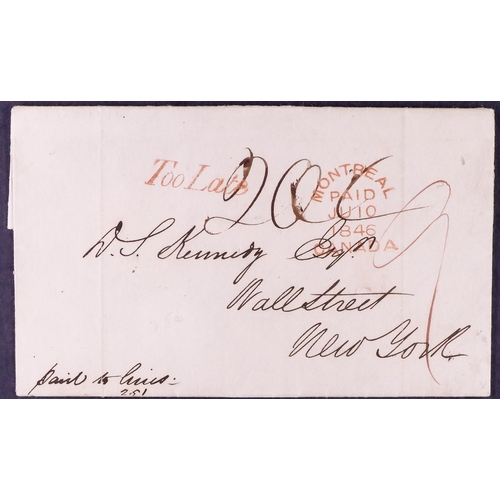 Too Late
MONTREAL
PAID
JU 10
1846
CANADA
D. S. Kennedy Esqr
Wall Street
New York
paid to lines
251